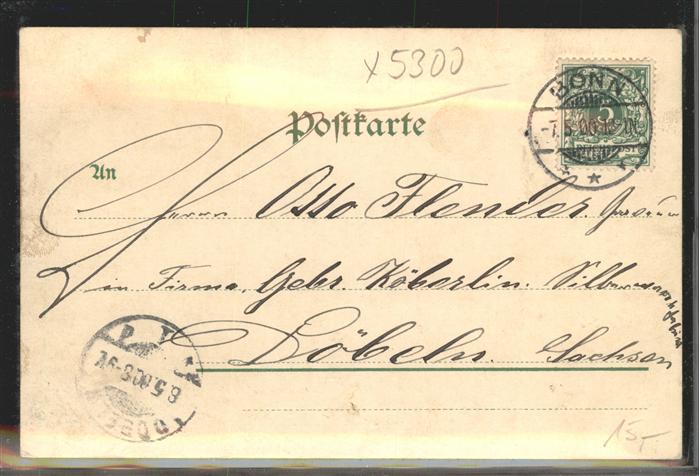 x5300
BONN
-7.5.00
Postkarte
An
Herrn Otto Flender.
in Firma, Gebr. Köberlin. Silberwarenfabrik
Döbeln. Sachsen
8.5.00.8-9V.
DÖBELN
15,-